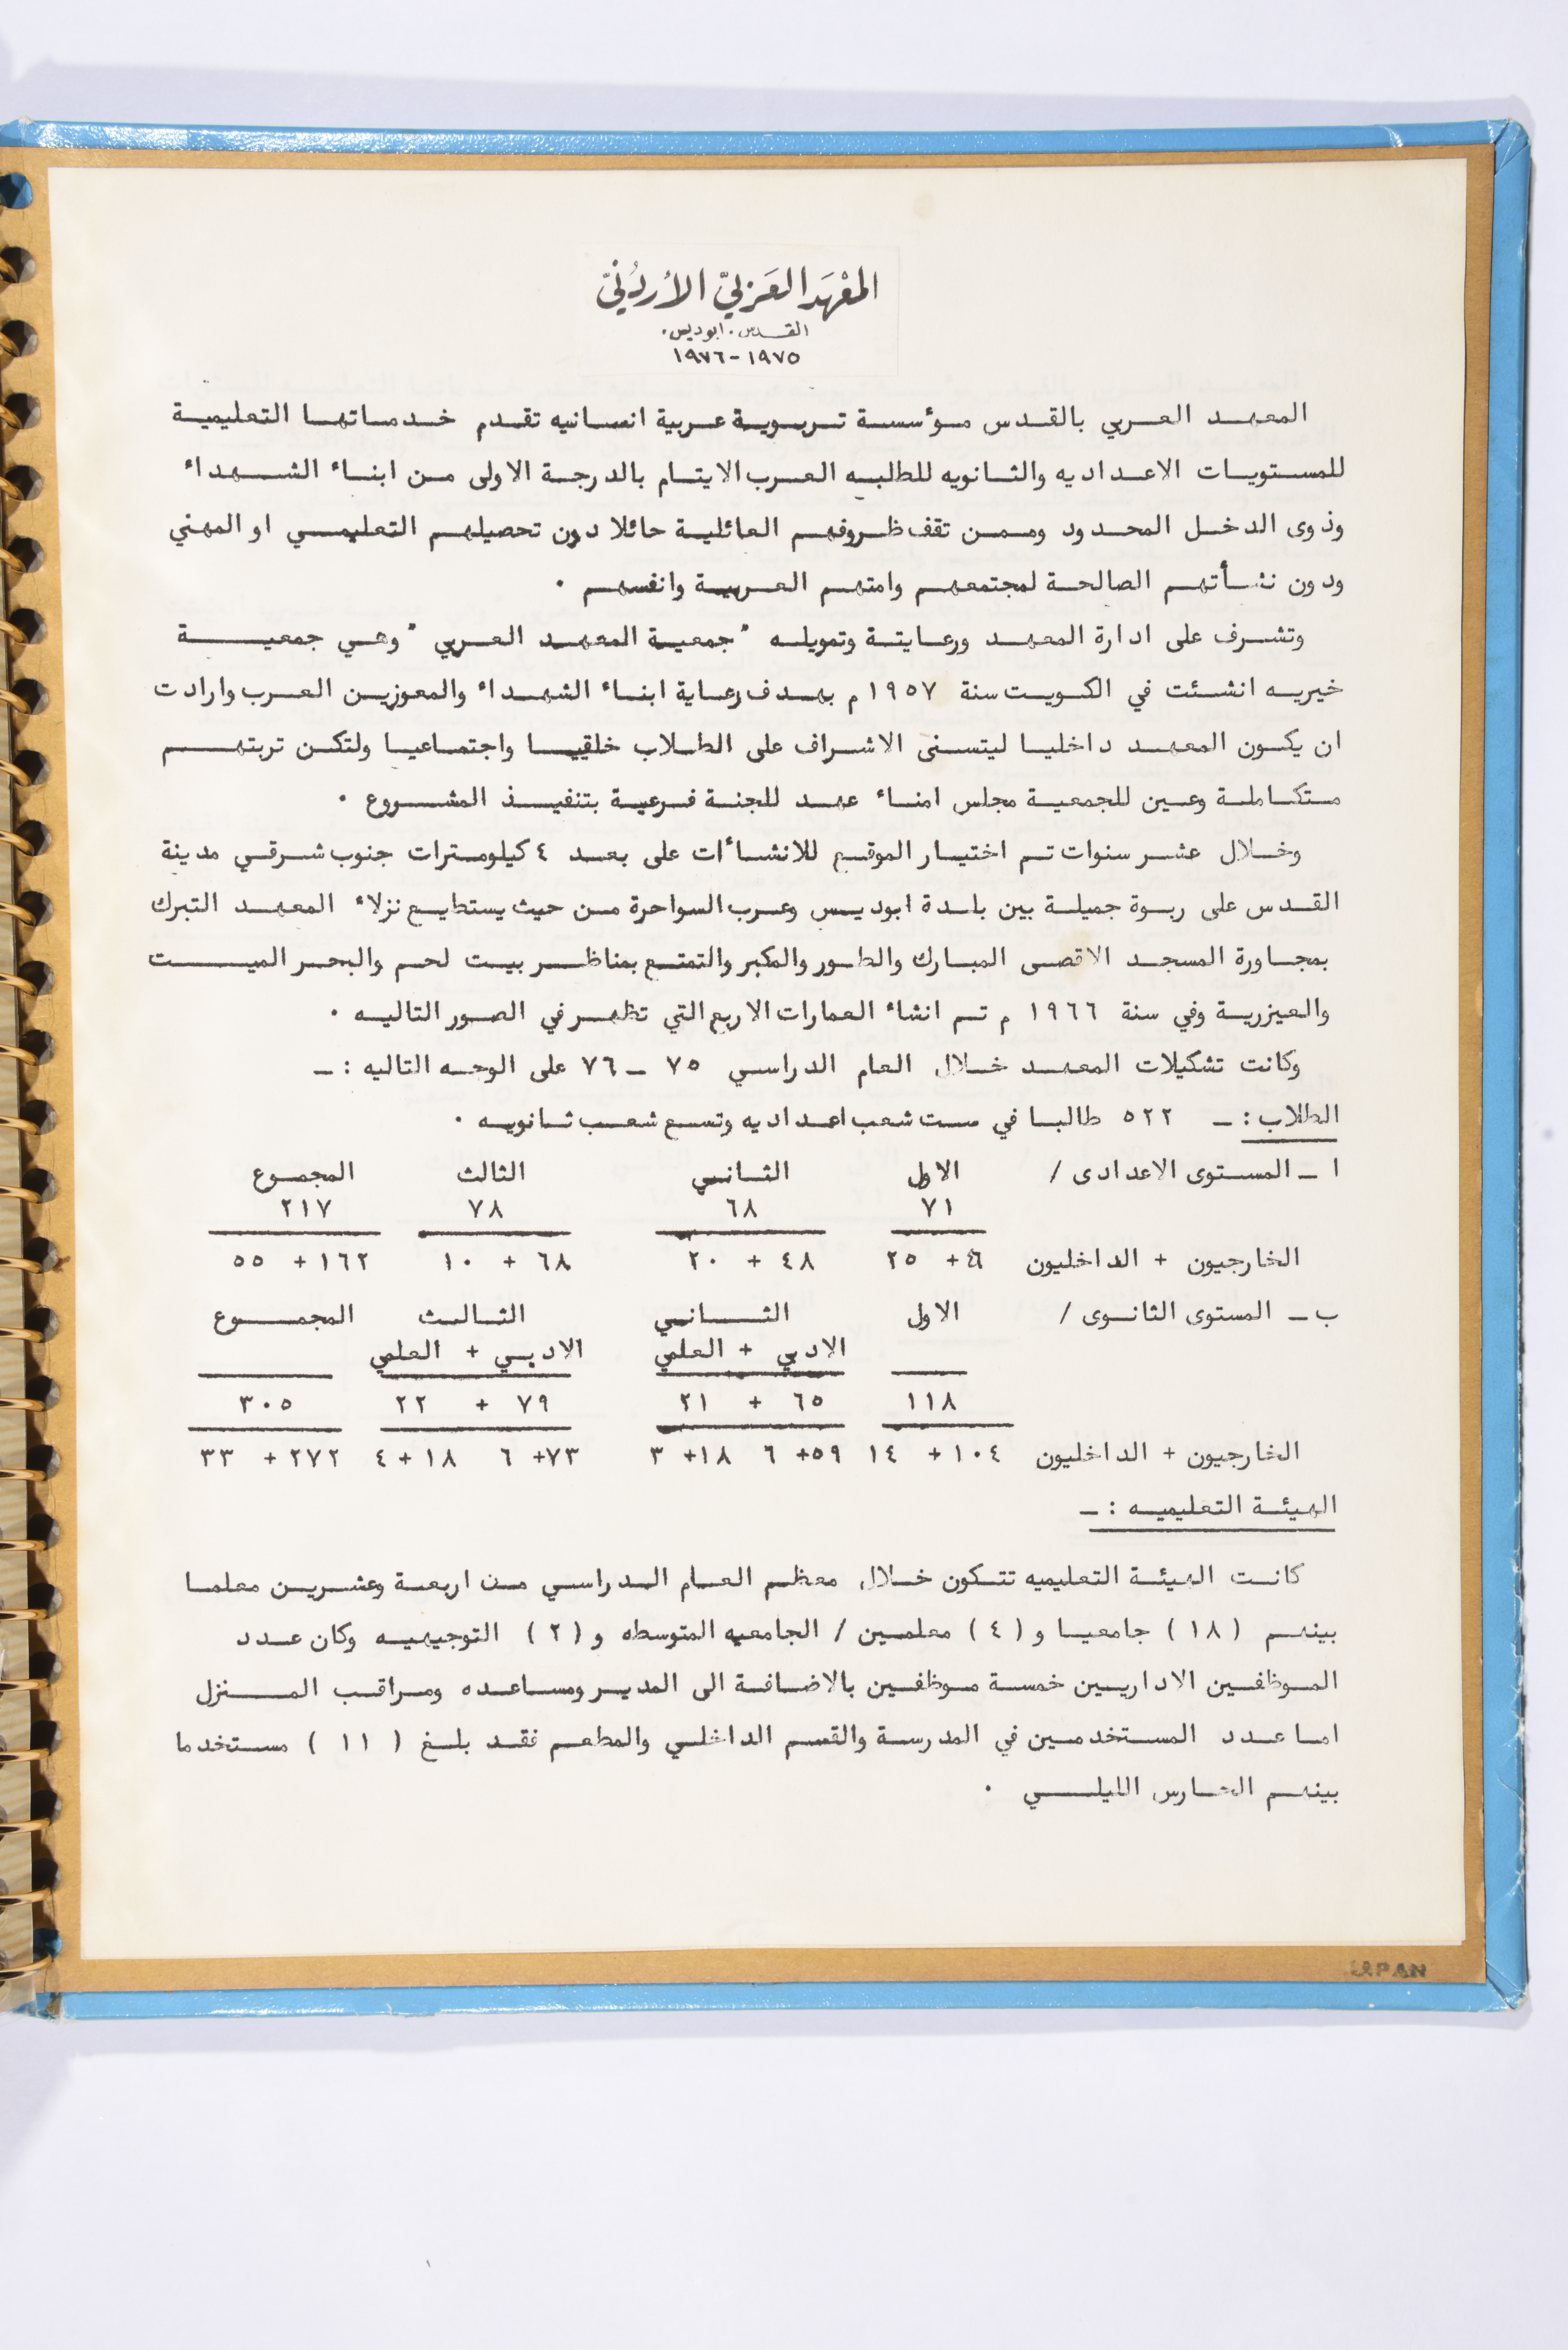 المعهد العربي الأردني
القدس . ابوديس .
١٩٧٥ - ١٩٧٦
المعهد العربي بالقدس مؤسسة تربوية عربية انسانيه تقدم خدماتها التعليمية
للمستويات الاعداديه والثانويه للطلبه العرب الايتام بالدرجة الاولى من ابناء الشهداء
وذوى الدخل المحدود وممن تقف ظروفهم العائلية حائلا دون تحصيلهم التعليمي او المهني
ودون نشأتهم الصالحة لمجتمعهم وامتهم العربية وانفسهم .
وتشرف على ادارة المعهد ورعايتة وتمويله " جمعية المعهد العربي " وهي جمعية
خيريه انشئت في الكويت سنة ١٩٥٧ م بهدف رعاية ابناء الشهداء والمعوزين العرب وارادت
ان يكون المعهد داخليا ليتسنى الاشراف على الطلاب خلقيا واجتماعيا ولتكن تربتهم
متكاملة وعين للجمعية مجلس امناء عهد للجنة فرعية بتنفيذ المشروع .
وخلال عشر سنوات تم اختيار الموقع للانشاءات على بعد ٤ كيلومترات جنوب شرقي مدينة
القدس على ربوة جميلة بين بلدة ابوديس وعرب السواحرة من حيث يستطيع نزلاء المعهد التبرك
بمجاورة المسجد الاقصى المبارك والطور والمكبر والتمتع بمناظر بيت لحم والبحر الميت
والعيزرية وفي سنة ١٩٦٦ م تم انشاء العمارات الاربع التي تظهر في الصور التاليه .
وكانت تشكيلات المعهد خلال العام الدراسي ٧٥ - ٧٦ على الوجه التاليه : -
الطلاب : - ٥٢٢ طالبا في ست شعب اعداديه وتسع شعب ثانويه .
ا - المستوى الاعدادى / الاول الثاني الثالث المجموع
٧١ ٦٨ ٧٨ ٢١٧
الخارجيون + الداخليون + ٢٥ ٤٨ + ٢٠ ٦٨ + ١٠ ١٦٢ + ٥٥
ب - المستوى الثانوى / الاول الثاني الثالث المجموع
الادبي + العلمي الادبي + العلمي
١١٨ ٦٥ + ٢١ ٧٩ + ٢٢ ٣٠٥
الخارجيون + الداخليون ١٠٤ + ١٤ ٥٩ + ٦ ١٨ + ٣ ٧٣ + ٦ ١٨ + ٤ ٢٧٢ + ٣٣
الهيئة التعليميه : -
كانت الهيئة التعليميه تتكون خلال معظم العام الدراسي من اربعة وعشرين معلما
بينهم ( ١٨ ) جامعيا و ( ٤ ) معلمين / الجامعيه المتوسطه و ( ٢ ) التوجيهيه وكان عدد
الموظفين الاداريين خمسة موظفين بالاضافة الى المدير ومساعده ومراقب المنزل
اما عدد المستخدمين في المدرسة والقسم الداخلي والمطعم فقد بلغ ( ١١ ) مستخدما
بينهم الحارس الليلي .
JAPAN